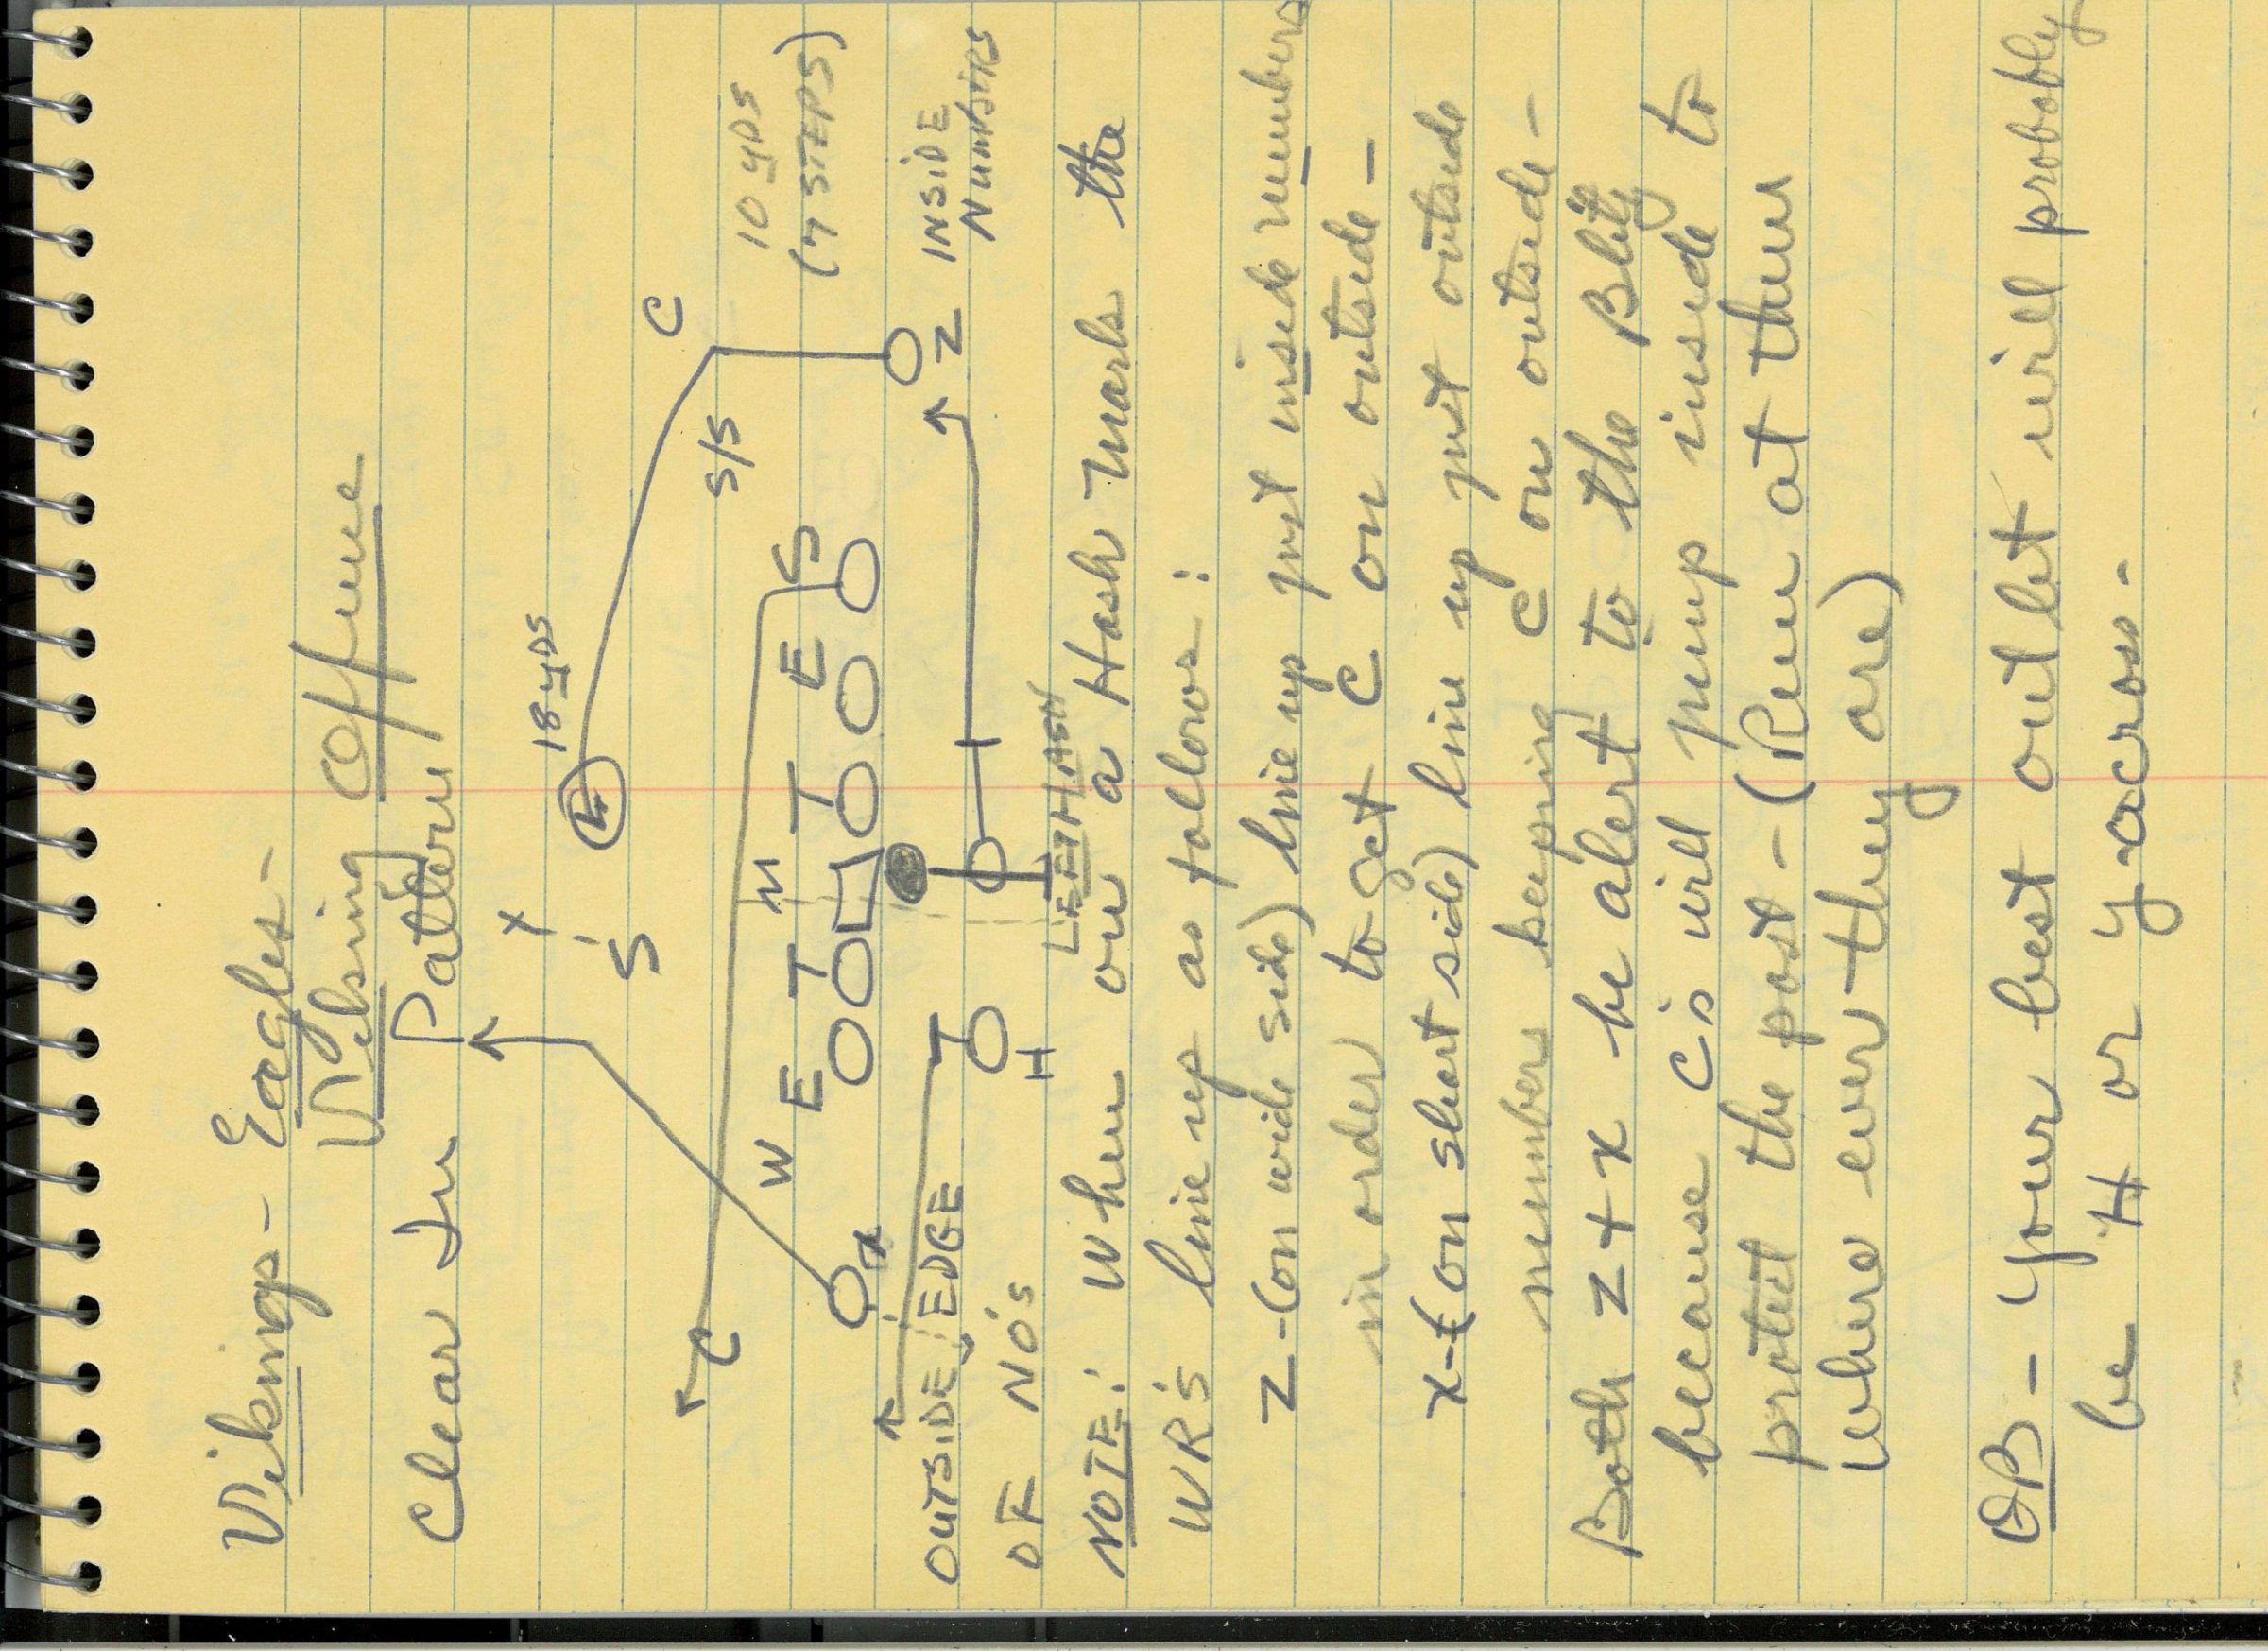 Vikings - Eagles -
Viking Offense
Clear In Pattern
18 yds
X
S
C
10 yds
(7 STEPS)
S/S
C
W E T M T E S
X
Z
INSIDE
NUMBERS
OUTSIDE EDGE
OF NO's
H
LEFT HASH
NOTE: When on a Hash Marks the
WR's line up as follows:
Z-(on wide side) line up just inside numbers
in order to get C on outside -
X-(on short side) line up just outside
numbers keeping C on outside -
Both Z + X be alert to the Blitz
because C's will jump inside to
protect the post - (Run at them
where ever they are)
QB - Your best outlet will probably
be H or Y-across -